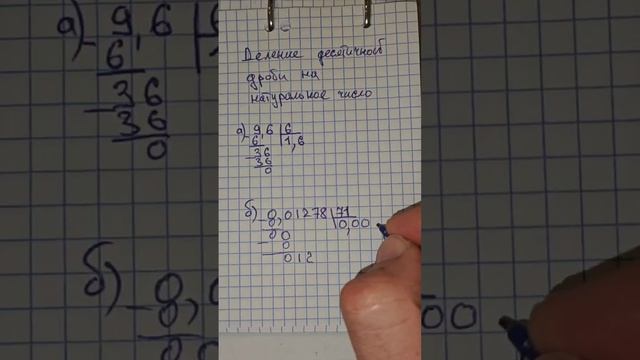 Деление десятичной
дроби на
натуральное число
а) 9,6 | 6
6 | 1,6
36
36
0
б) 0,01278 | 71
0 | 0,00
0
0
012